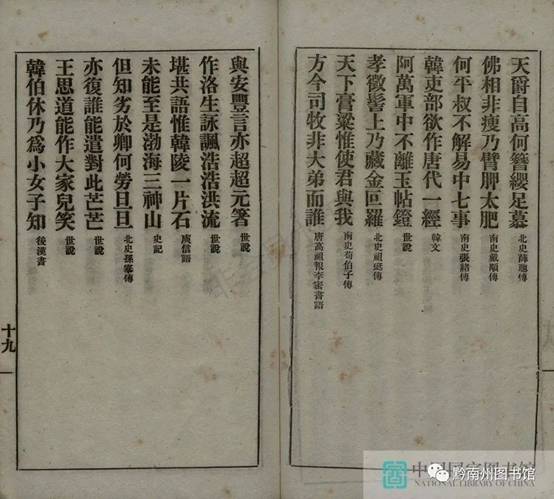 天爵自高何簪纓足慕 北史薛聰傳
佛相非瘦乃臂胛太肥 南史戴顒傳
何平叔不解易中七事 南史張緒傳
韓吏部欲作唐代一經 韓文
阿萬軍中不離玉帖鐙 世說
孝徵髻上乃藏金叵羅 北史祖珽傳
天下膏粱惟使君與我 南史荀伯子傳
方今司牧非大弟而誰 唐高祖報李密書語
與安豐言亦超超元箸 世說
作洛生詠諷浩浩洪流 世說
堪共語惟韓陵一片石 庾信語
未能至是渤海三神山 史記
但知劣於卿何勞旦旦 北史孫搴傳
亦復誰能遣對此芒芒 世說
王思道能作大家兒笑 世說
韓伯休乃爲小女子知 後漢書
十九
中國國家圖書館
NATIONAL LIBRARY OF CHINA
黔南州图书馆